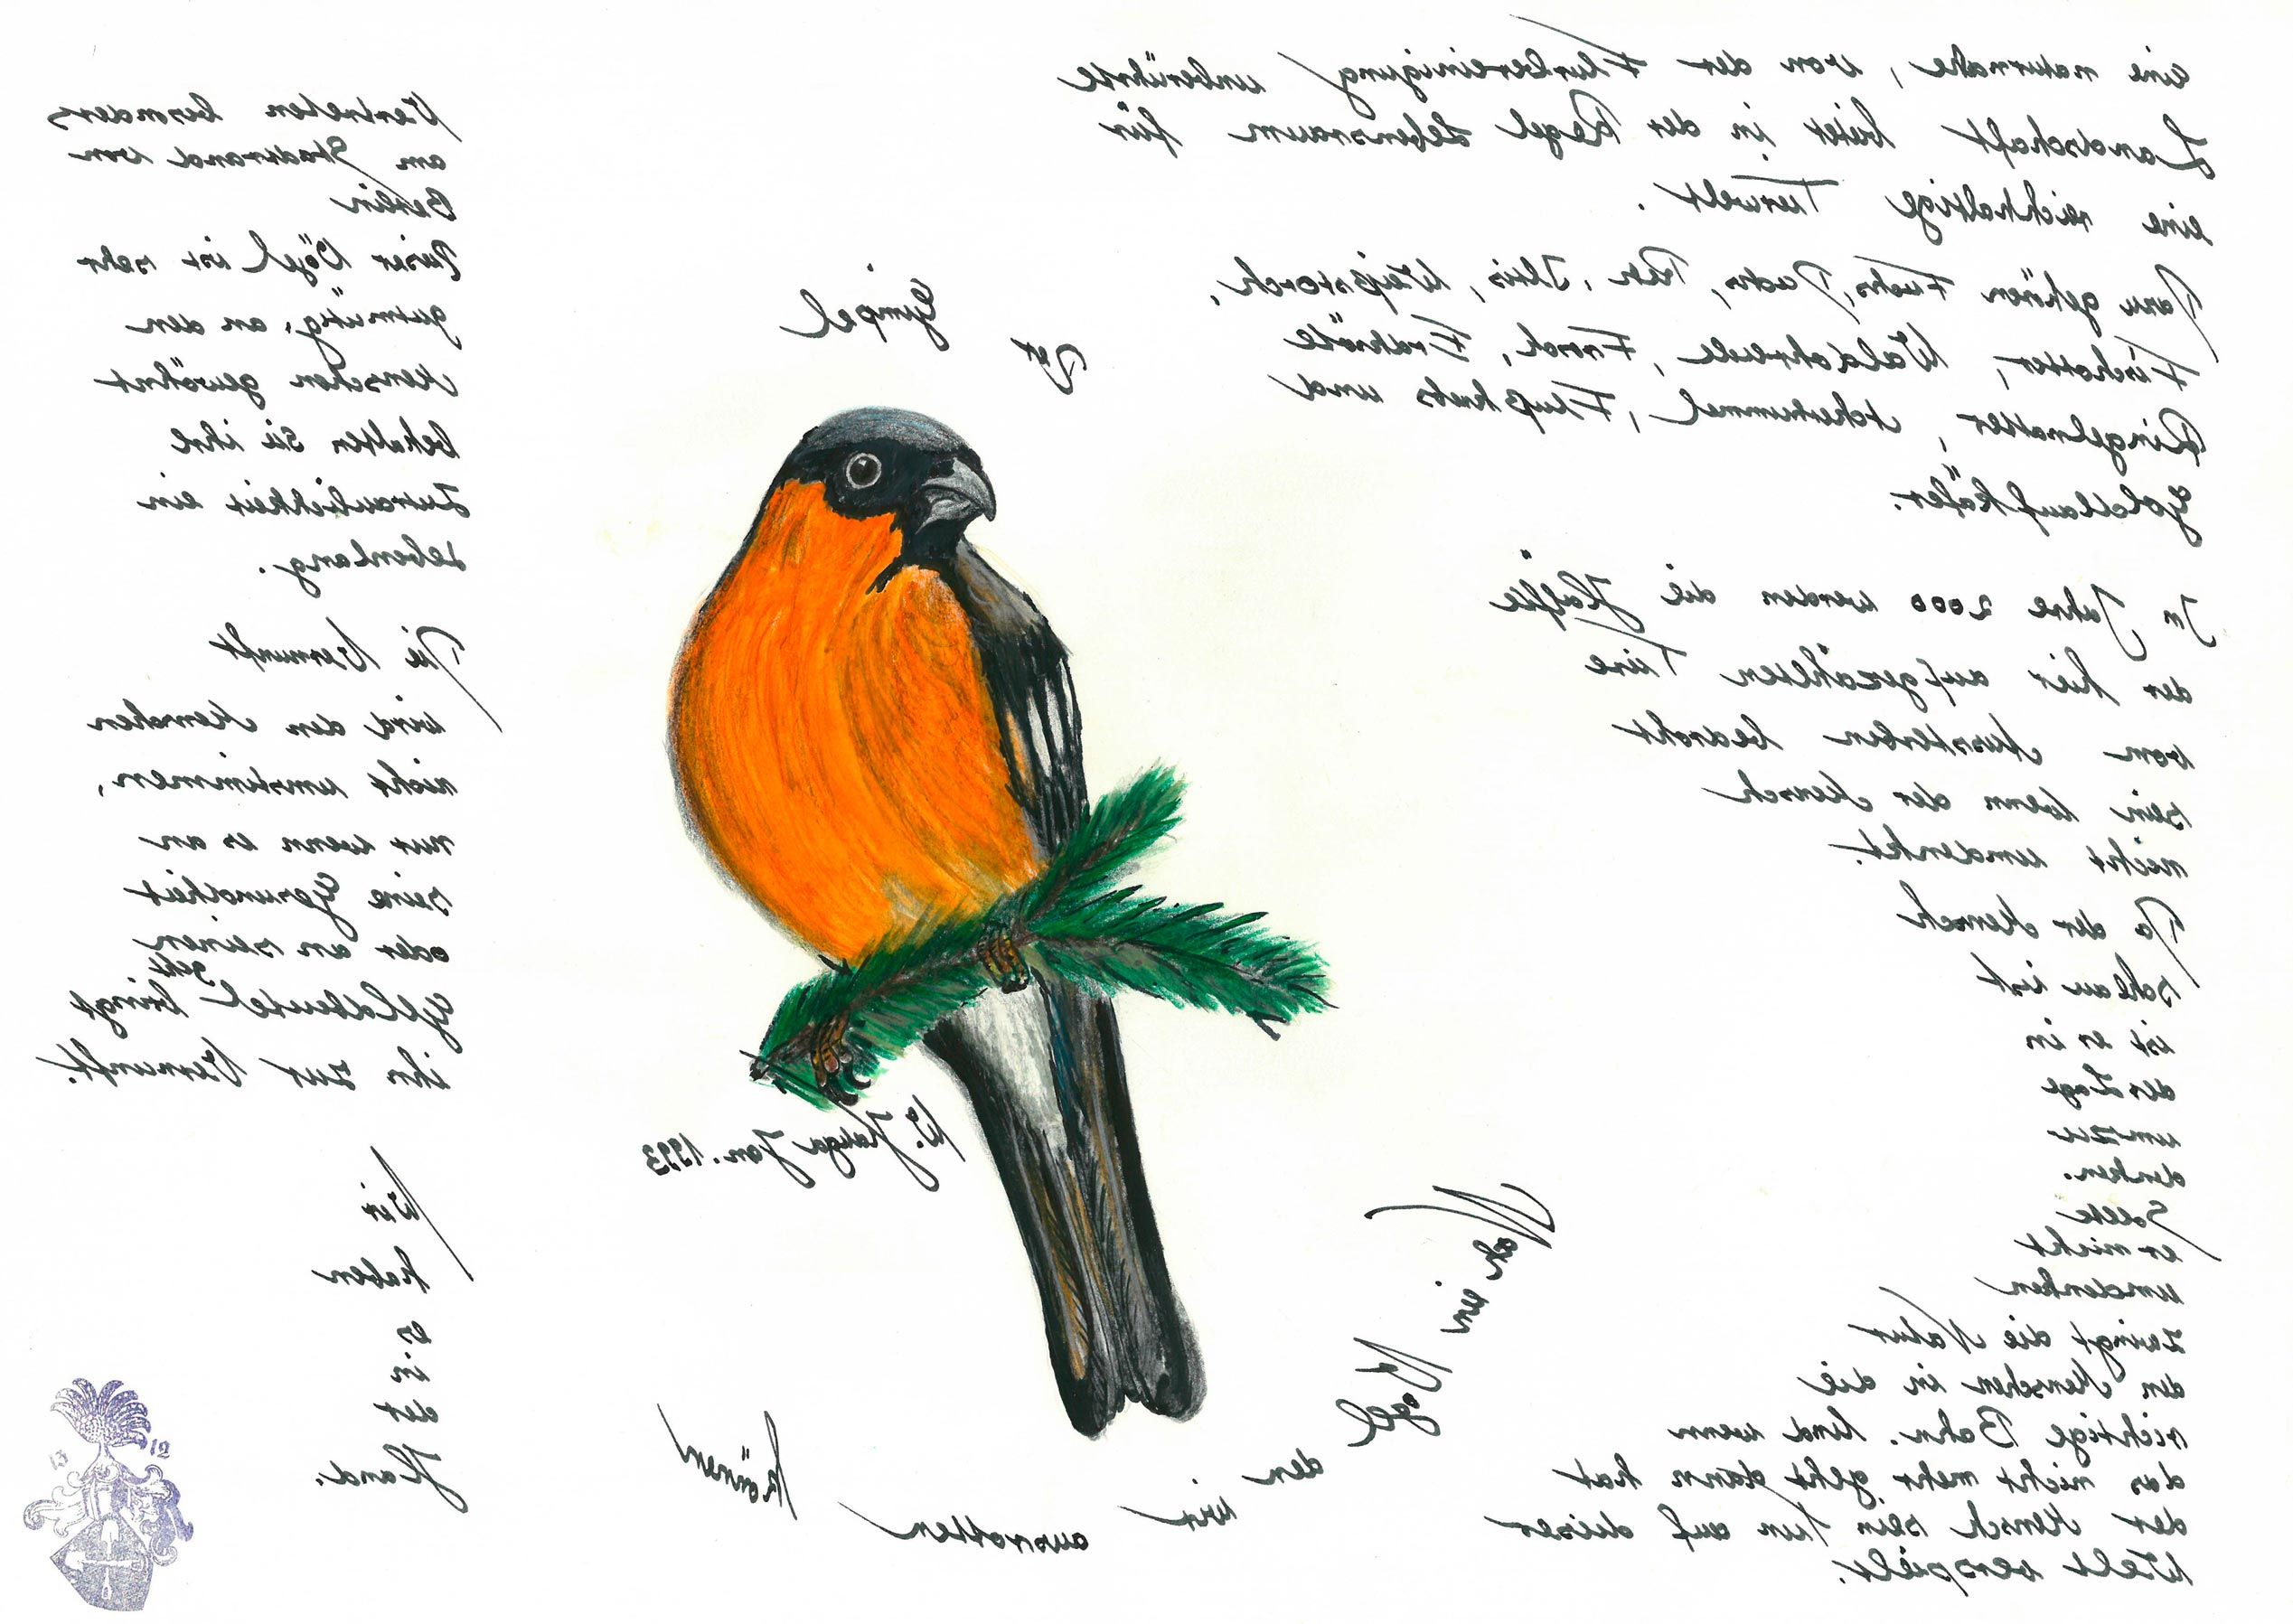 eine naturnahe, von der Flurbereinigung unberührte
Landschaft bietet in der Regel Lebensraum für
eine reichhaltige Tierwelt.
Dazu gehören Fuchs, Dachs, Reh, Iltis, Weißstorch,
Fischotter, Waldohreule, Frosch, Erdkröte
Ringelnatter, Ackerhummel, Flußkrebs und
Goldlaufkäfer.
In Jahre 2000 werden die Hälfte
der hier aufgezählten Tiere
vom Aussterben bedroht
sein wenn der Mensch
nicht umdenkt.
Da der Mensch
schlau ist
ist er in
der Lage
umzu
denken.
Sollte
er nicht
umdenken
zwingt die Natur
den Menschen in die
richtige Bahn. Und wenn
das nicht mehr geht dann hat
der Mensch sein tun auf dieser
Welt verspielt.
Der Gimpel
W. Hauga Jan. 1993
Noch ein Vogel den wir ausrotten können
Vertreten besonders
am Stadtrand von
Berlin
Dieser Vögel ist sehr
gutmütig, an den
Menschen gewöhnt
behalten sie ihre
Zutraulichkeit ein
Lebenlang.
Die Vernunft
wird den Menschen
nicht umstimmen,
nur wenn es an
seine Gesundheit
oder an seinen
Geldbeutel geht bringt
ihn zur Vernunft.
Wir
haben
es
in
der
Hand.